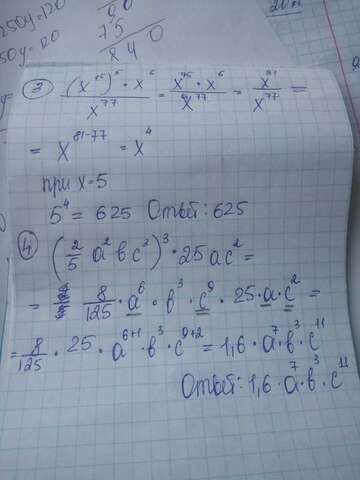 75
840
③ (x¹⁵)⁵ · x⁶ / x⁷⁷ = x⁷⁵ · x⁶ / x⁷⁷ = x⁸¹ / x⁷⁷ =
= x⁸¹⁻⁷⁷ = x⁴
при x=5
5⁴ = 625 Ответ: 625
④ (2/5 a²bc³)³ · 25ac² =
= 8/125 · a⁶ · b³ · c⁹ · 25 · a · c² =
= 8/125 · 25 · a⁶⁺¹ · b³ · c⁹⁺² = 1,6 · a⁷ · b³ · c¹¹
Ответ: 1,6 · a⁷ · b³ · c¹¹